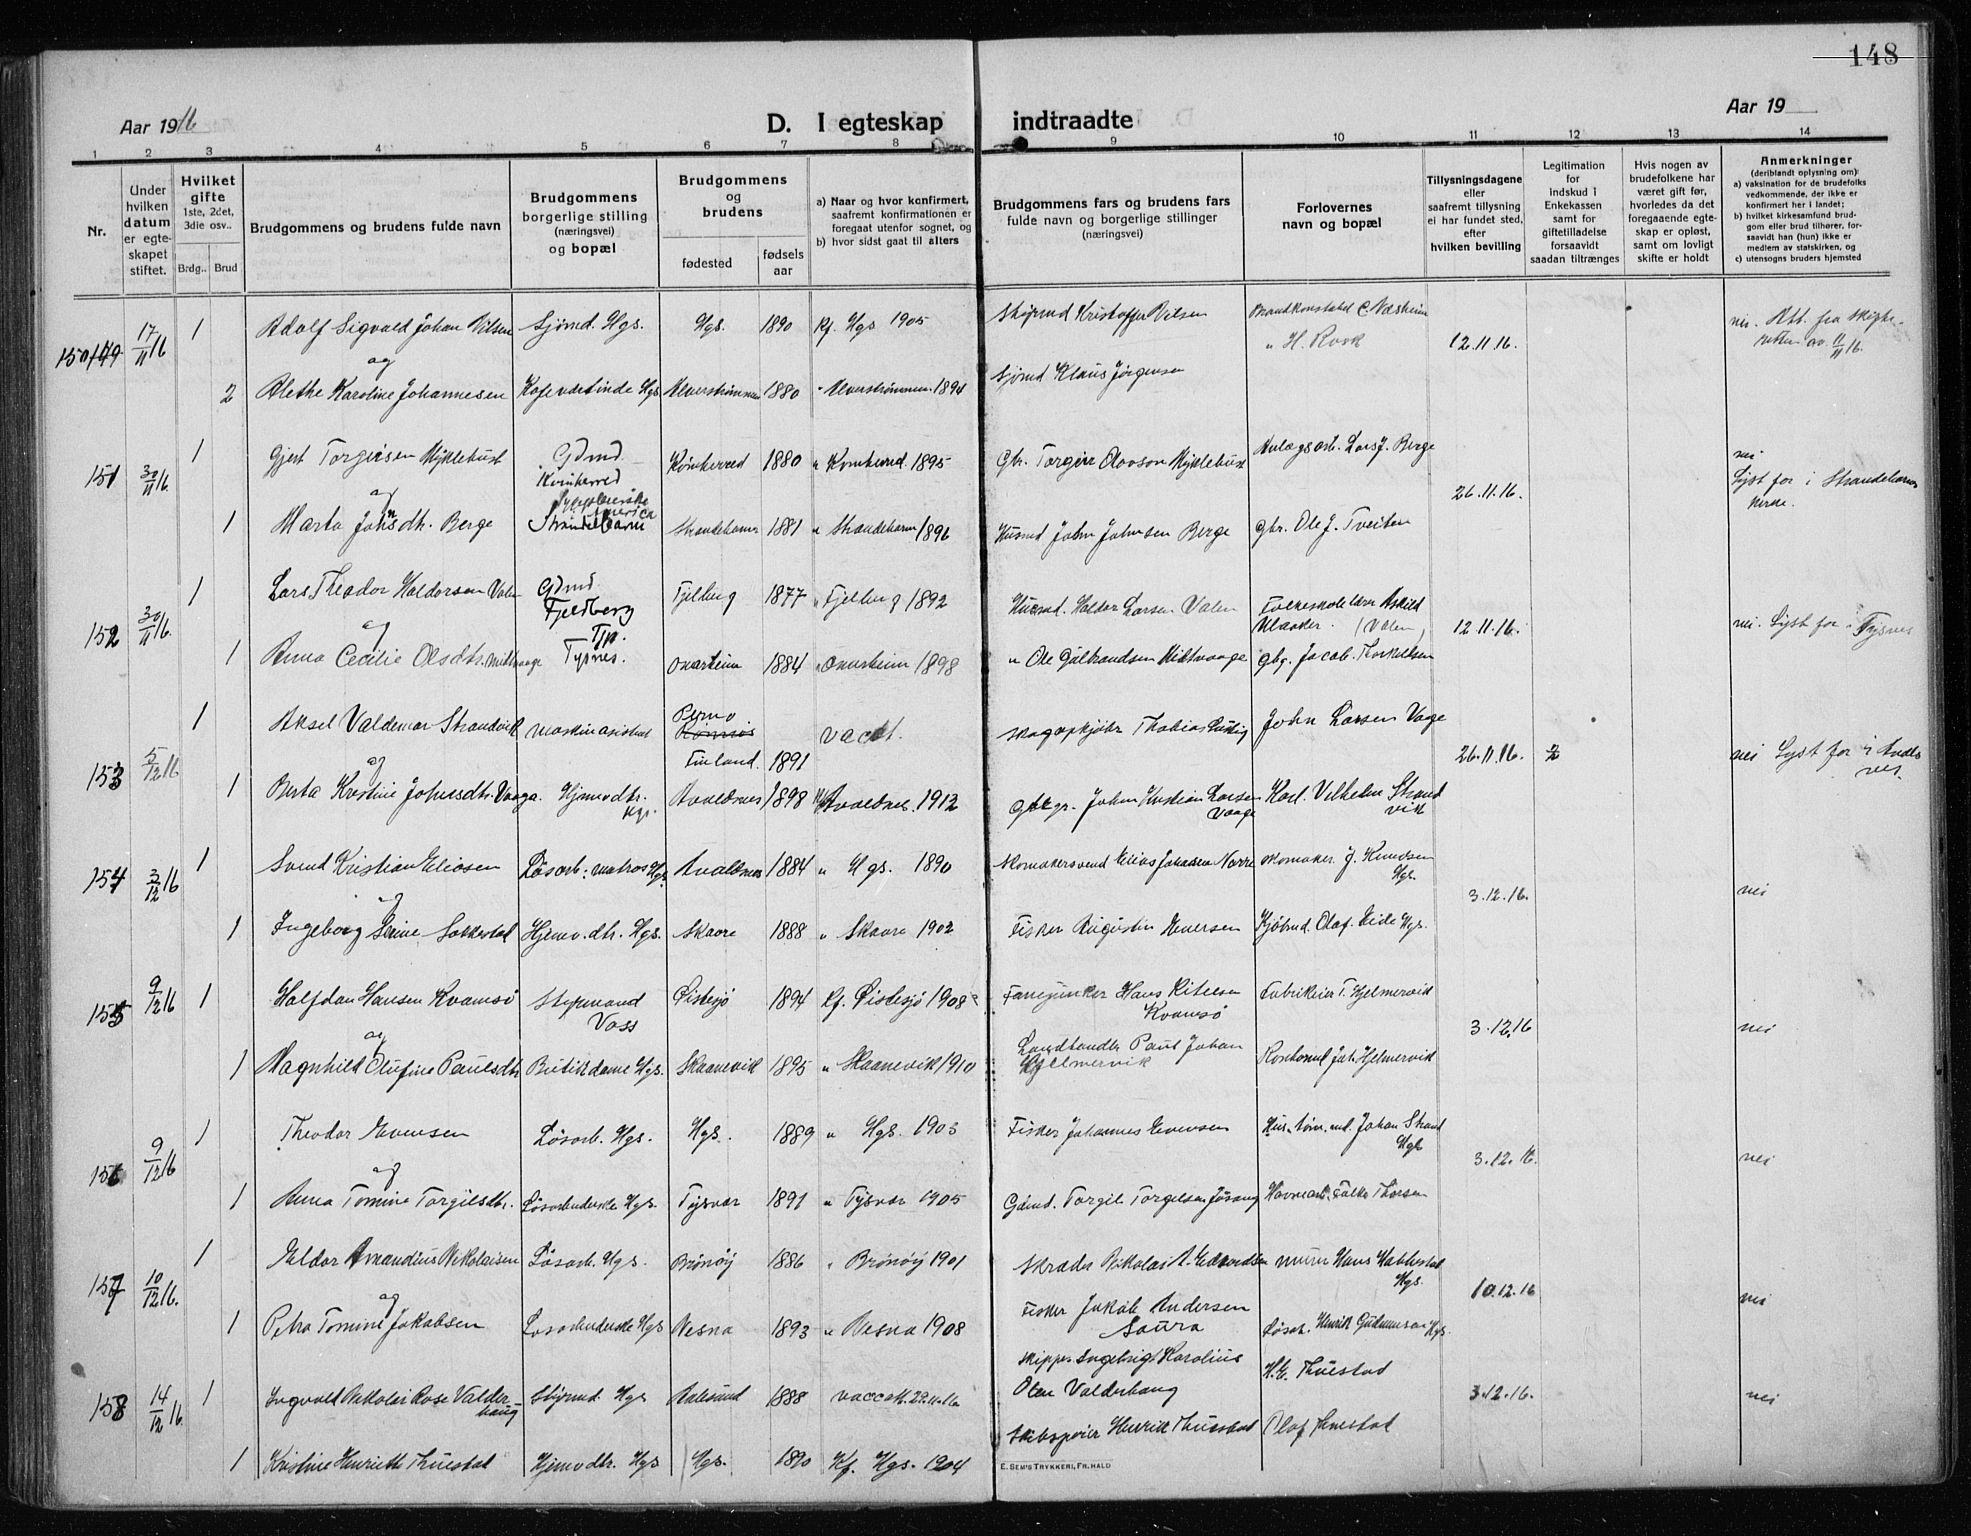 148
Aar 1916
D. I egteskap indtraadte
Aar 19
1 2 3 4 5 6 7 8 9 10 11 12 13 14
Nr.
Under hvilken datum er egteskapet stiftet.
Hvilket gifte 1ste, 2det, 3die osv..
Brdg.. Brud
Brudgommens og brudens fulde navn
Brudgommens borgerlige stilling (næringsvei) og bopæl
Brudgommens og brudens
fødested
fødsels aar
a) Naar og hvor konfirmert, saafremt konfirmationen er foregaat utenfor sognet, og
b) hvor sidst gaat til alters
Brudgommens fars og brudens fars fulde navn og borgerlige stillinger (næringsvei)
Forlovernes navn og bopæl
Tillysningsdagene eller saafremt tillysning ei har fundet sted, efter hvilken bevilling
Legitimation for indskud i Enkekassen samt for giftetilladelse forsaavidt saadan tiltrænges
Hvis nogen av brudefolkene har været gift før, hvorledes da det foregaaende egteskap er opløst, samt om lovligt skifte er holdt
Anmerkninger (deriblandt oplysning om:
a) vaksination for de brudefolks vedkommende, der ikke er konfirmert her i landet;
b) hvilket kirkesamfund brudgom eller brud tilhører, forsaavidt han (hun) ikke er medlem av statskirken, og
c) utensogns bruders hjemsted
17/11 16 1 Adolf Sigvald Johan Nilsen Sjömd. Hgs. Hgs. 1890 Kf. Hgs 1905 Kristoffer Nilsen Brandkonstabel C Næsheim
og " H. Rook 12.11.16. nei. Att. fra skifteretten av 11/11 16.
2 Alethe Karoline Johannesen Kafevertinde Hgs Alverströmmen 1880 " Alverströmmen 1894 Sjömd Klaus Jörgensen
151 30/11 16. 1 Gjert Torgeirsen Myklebust Gdmd Kvinherred Kvinherred 1880 " Kvinherred 1895 Gbr. Torgeir Olavson Myklebust Anlægsarb. Lars J. Berge
og 26.11.16. nei Lyst for i Strandebarm Kirke.
1 Marta Johnsdtr. Berge America Strandebarm Strandebarm 1881 " Strandebarm 1896 Husmd John Johnsen Berge Gbr. Ole J. Tveiten
152 30/11 16. 1 Lars Theodor Haldorsen Valen Gdmd. Fjeldberg Fjelberg 1877 " Fjelberg 1892 Husmd. Haldor Larsen Valen Folkeskolelærer Askild (Valen)
og 12.11.16. nei. Lyst for i Tysnes
1 Anna Cecilie Olsdtr. Midtvaage Tysnes. Onarheim 1884 " Onarheim 1898 " Ole Gulbrandsen Midtvaage Gbg. Jacob Thorkelsen
153 5/12 16 1 Aksel Valdemar Strandvik maskinasistent Finland. 1891 vact. Thobias John Larsen Vaage
og 26.11.16. 2 nei Lyst for i Avaldsnes
1 Berta Kristine Johnsdtr. Vaage. Hjemv.dtr. Hgs. Avaldsnes 1898 Avaldsnes. 1912 gbbgr. John Kristian Larsen Vaage Karl Vilhelm Strandvik
154 3/12 16 1 Svend Kristian Eliasen Lösarb: matros Hgs Avaldsnes 1884 " Hgs. 1890 Skomakersvend Elias Johansen Norre skomaker J. Knudsen Hgs.
og 3.12.16. nei
1 Ingeborg Serine Sakkestad Hjemv.dtr. Hgs. Skaare 1888 " Skaare 1902 Fisker Augustin Iversen Kjöbmd. Olaf Eide Hgs.
155 9/12 16 1 Halfdan Hansen Kvamsö Styrmand Voss Östesjö 1894 Kf. Östesjö 1908 Fanejunker Hans Kitelsen Kvamsö Fabrikeier T. Hjelmervik
og 3.12.16 nei
1 Magnhild Olufine Paulsdtr Butikdame Hgs. Skaanevik 1895 " Skaanevik 1910 Landhandler Paul Johan Hjelmervik Kontormd. Joh. Hjelmervik
156 9/12 16 1 Theodor Evensen Lösarb. Hgs. Hgs. 1889 " Hgs. 1903 Fisker Johannes Evensen Hus töm.md. Johan Strand Hgs
og 3.12.16. nei
1 Anna Tomine Torgilsdtr. Lösarbeiderske Hgs. Tysvær 1891 " Tysvær 1905 Gdmd. Torgil Torgilsen Falke Thorsen
157 10/12 16. 1 Eldor Amandius Nikolaisen Lösarb. Hgs. Brönöy 1886 " Brönöy 1901 Skræder Nikolai A. Edvardsen murer Hans Habbestad Hgs.
og 10.12.16 nei
1 Petra Tomine Jakobsen Lösarbeiderske Hgs Nesna 1893 " Nesna 1908 Fisker Jakob Andersen Saura Lösarb. Henrik Gudmunsen Hgs.
158 14/12 16 1 Ingvald Nikolai Rose Valderhaug Styrmd. Hgs Aalesund 1888 vaccatt. 29.11.16. Skipper Ingebrigt Karolius Olsen Valderhaug H. E. Thuestad
3.12.16. nei
1 Kristine Henriette Thuestad Hjemvdtr. Hgs Hgs. 1890 Kf. Hgs. 1904 Henrik Thuestad Olaf Thuestad
E. SEM'S TRYKKERI, FR.HALD